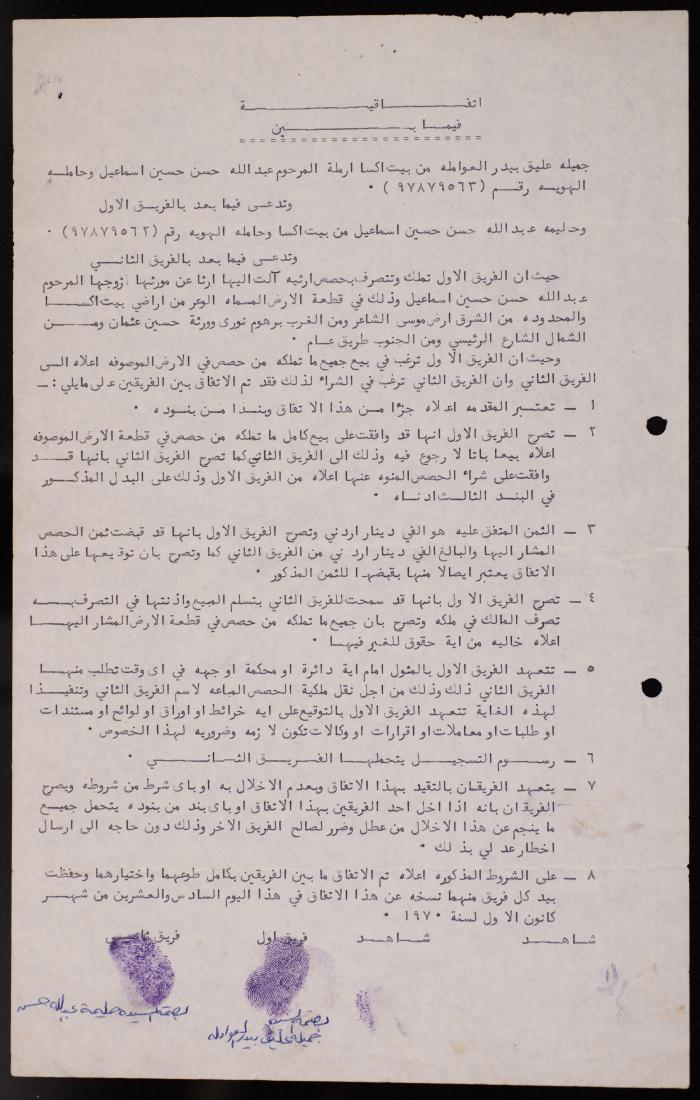 اتفـــــاقيـــــة
فيما بـــــين
جميله عليق بيدر العوامله من بيت اكسا ارملة المرحوم عبدالله حسن حسين اسماعيل وحاملــه
الهويـه رقـــم (٩٧٨٧٩٥٦٣) ٠
وتدعى فيما بعد بالفريق الاول
وحليمه عبدالله حسن حسين اسماعيل من بيت اكسا وحامله الهويه رقم (٩٧٨٧٩٥٦٢) ٠
وتدعى فيما بعد بالفريق الثانــي
حيث ان الفريق الاول تملك وتتصرف بحصص ارثيه آلت اليها ارثا عن مورثها زوجها المرحوم
عبدالله حسن حسين اسماعيل وذلك في قطعة الارض المسماه الوعر من اراضي بيت اكســـا
والمحدوده من الشرق ارض موسى الشاعر ومن الغرب برهوم نورى وورثة حسين عثمان ومـــن
الشمال الشارع الرئيسي ومن الجنوب طريق عــام ٠
وحيث ان الفريق الاول ترغب في بيع جميع ما تملكه من حصص في الارض الموصوفه اعلاه الــى
الفريق الثاني وان الفريق الثاني ترغب في الشراء لذلك فقد تم الاتفاق بين الفريقين على مايلي : ــ
١ ــ تعتــبر المقدمه اعلاه جزءا مــن هذا الاتفاق وبنــدا مــن بنــوده ٠
٢ ــ تصرح الفريق الاول انها قد وافقت على بيع كامل ما تملكه من حصص في قطعة الارض الموصوفه
اعلاه بيعا باتا لا رجوع فيه وذلك الى الفريق الثاني كما تصرح الفريق الثاني بانها قــد
وافقت على شراء الحصص المنوه عنها اعلاه من الفريق الاول وذلك على البدل المذكــور
في البند الثالث ادنــاه ٠
٣ ــ الثمن المتفق عليه هو الفي دينار اردني وتصرح الفريق الاول بانها قد قبضت ثمن الحصص
المشار اليها والبالغ الفي دينار اردني من الفريق الثاني كما وتصرح بان توقيعها على هذا
الاتفاق يعتبر ايصالا منها بقبضها للثمن المذكور ٠
٤ ــ تصرح الفريق الاول بانها قد سمحت للفريق الثاني بتسلم المبيع واذنتها في التصرف بــه
تصرف المالك في ملكه وتصرح بان جميع ما تملكه من حصص في قطعة الارض المشار اليهــا
اعلاه خاليه من اية حقوق للغير فيهــا ٠
٥ ــ تتعهد الفريق الاول بالمثول امام اية دائرة او محكمة او جهه في اى وقت تطلب منهــا
الفريق الثاني ذلك وذلك من اجل نقل ملكية الحصص المباعه لاسم الفريق الثاني وتنفيــذا
لهذه الغاية تتعهد الفريق الاول بالتوقيع على ايه خرائط او اوراق او لوائح او مستندات
او طلبات او معاملات او اقرارات او وكالات تكون لازمه وضروريه لهذا الخصوص ٠
٦ ــ رســوم التسجيــل يتحملهــا الفــريــق الثــانــي ٠
٧ ــ يتعهد الفريقان بالتقيد بهذا الاتفاق وبعدم الاخلال به او باى شرط من شروطه ويصرح
الفريقان بانه اذا اخل احد الفريقين بهذا الاتفاق او باى بند من بنوده يتحمل جميــع
ما ينجم عن هذا الاخلال من عطل وضرر لصالح الفريق الاخر وذلك دون حاجه الى ارسال
اخطار عدلي بذلك ٠
٨ ــ على الشروط المذكوره اعلاه تم الاتفاق ما بين الفريقين بكامل طوعهما واختيارهما وحفظت
بيد كل فريق منهما نسخه عن هذا الاتفاق في هذا اليوم السادس والعشرين من شهــر
كانون الاول لسنة ١٩٧٠ ٠
شاهــد شاهــد فريق اول فريق ثانــي
بصمة السيده جميلة عليق بيدر العوامله
بصمة السيده حليمة عبدالله حسن